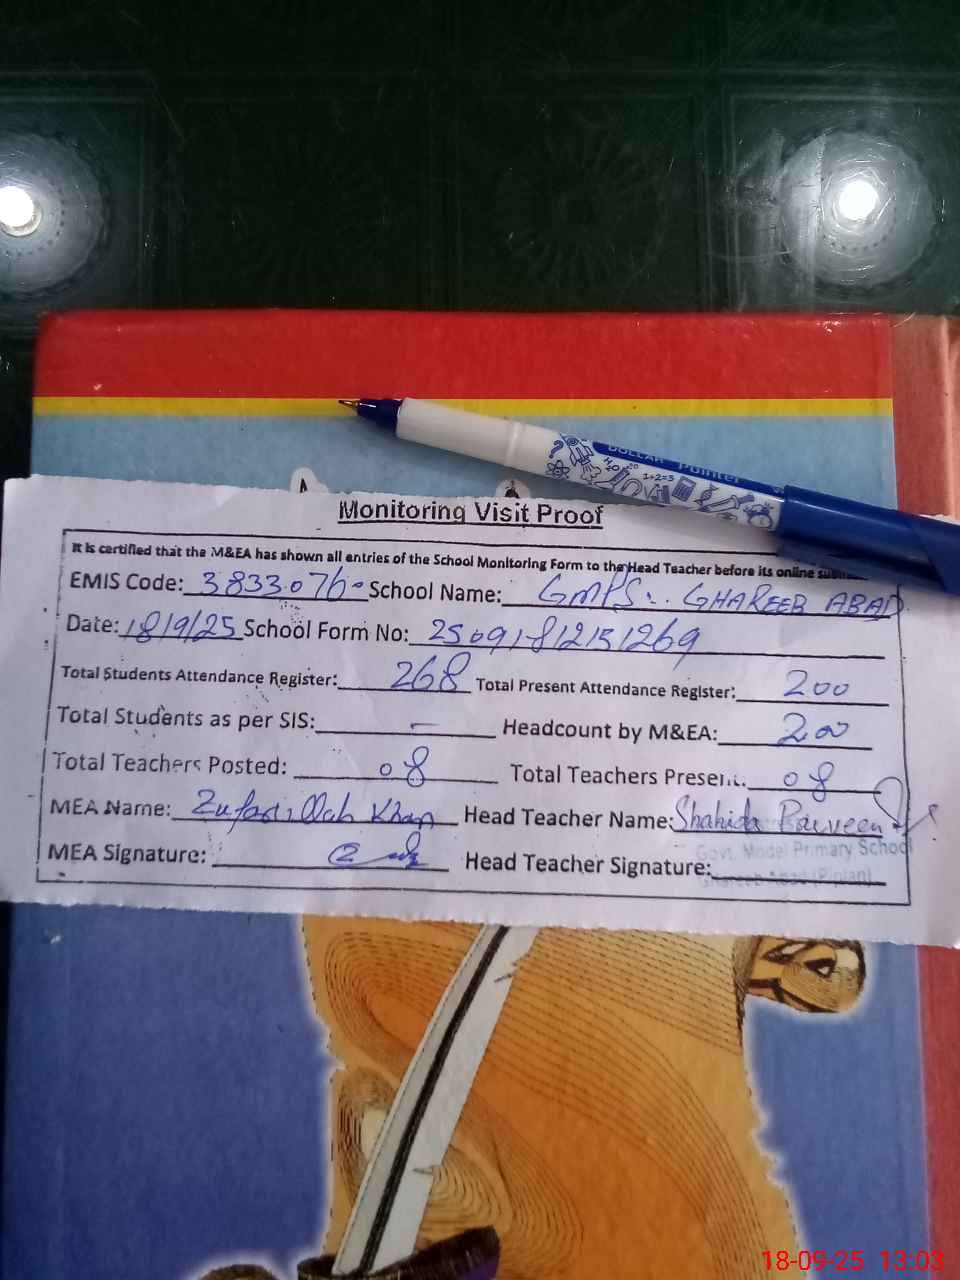 DOLLAR Pointer
H₂O
1+2=3
Monitoring Visit Proof
It is certified that the M&EA has shown all entries of the School Monitoring Form to the Head Teacher before its online
EMIS Code: 38330760 School Name: GMPS.. GHAREEB ABAD
Date: 18/9/25 School Form No: 25091812151269
Total Students Attendance Register: 268 Total Present Attendance Register: 200
Total Students as per SIS: - Headcount by M&EA: 200
Total Teachers Posted: 08 Total Teachers Present: 08
MEA Name: Khan Head Teacher Name: Shahida Parveen
Govt. Model Primary School
MEA Signature: Head Teacher Signature:
Ghareeb Abad (Piplan)
18-09-25 13:03